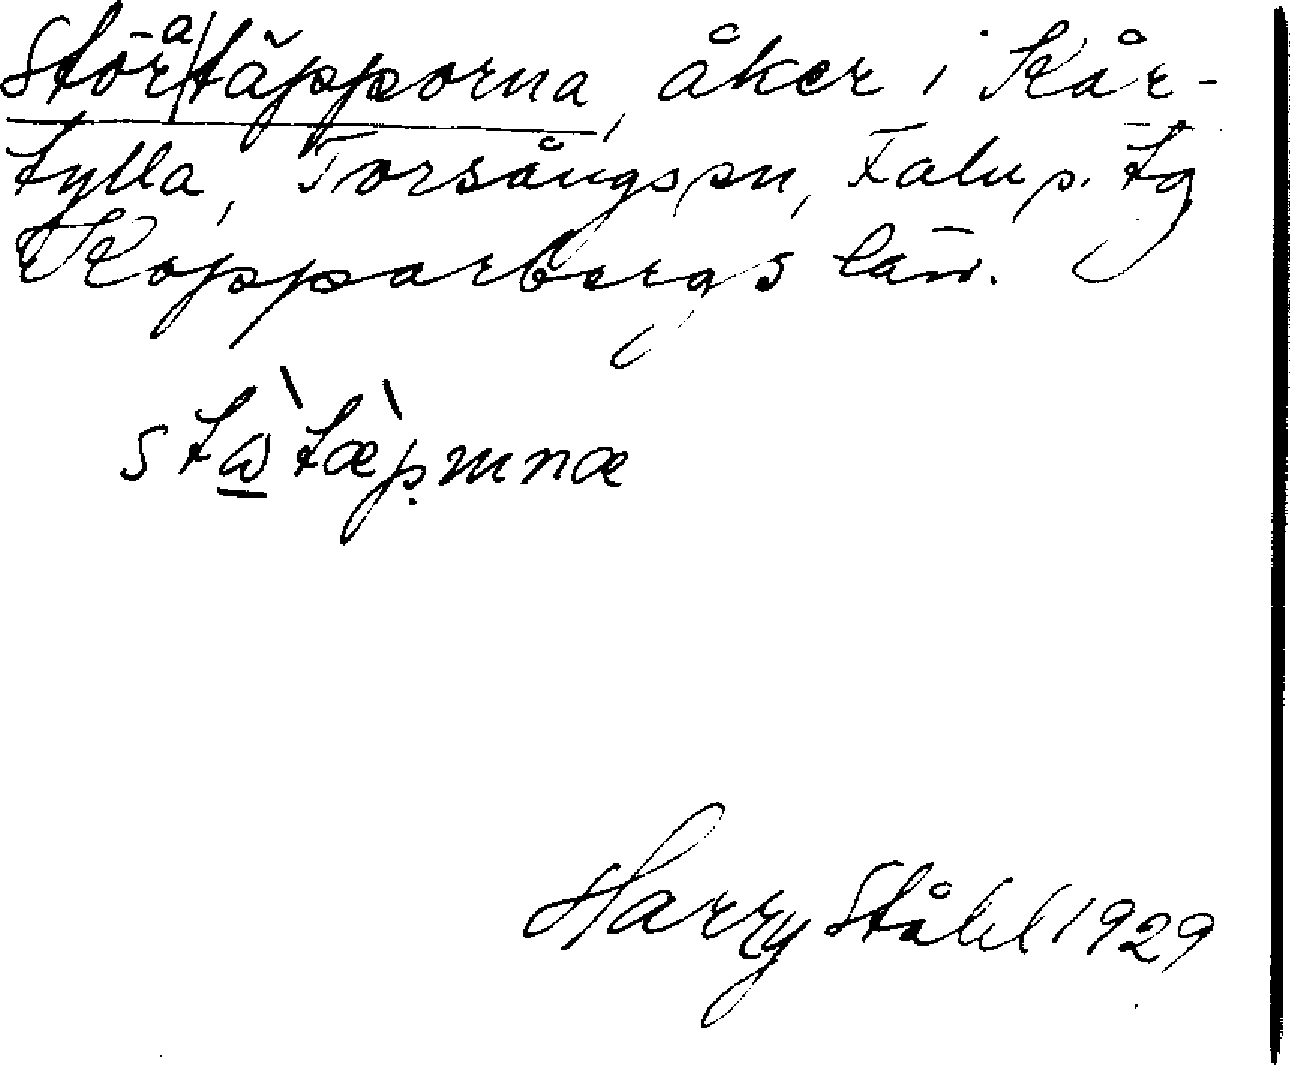 Stör(a)täpporna, åker i Kår-
tylla, Torsångs sn, Falu s. tg
Kopparbergs län.
stɷ̀tæ̀pmnæ
Harry Ståhl 1929